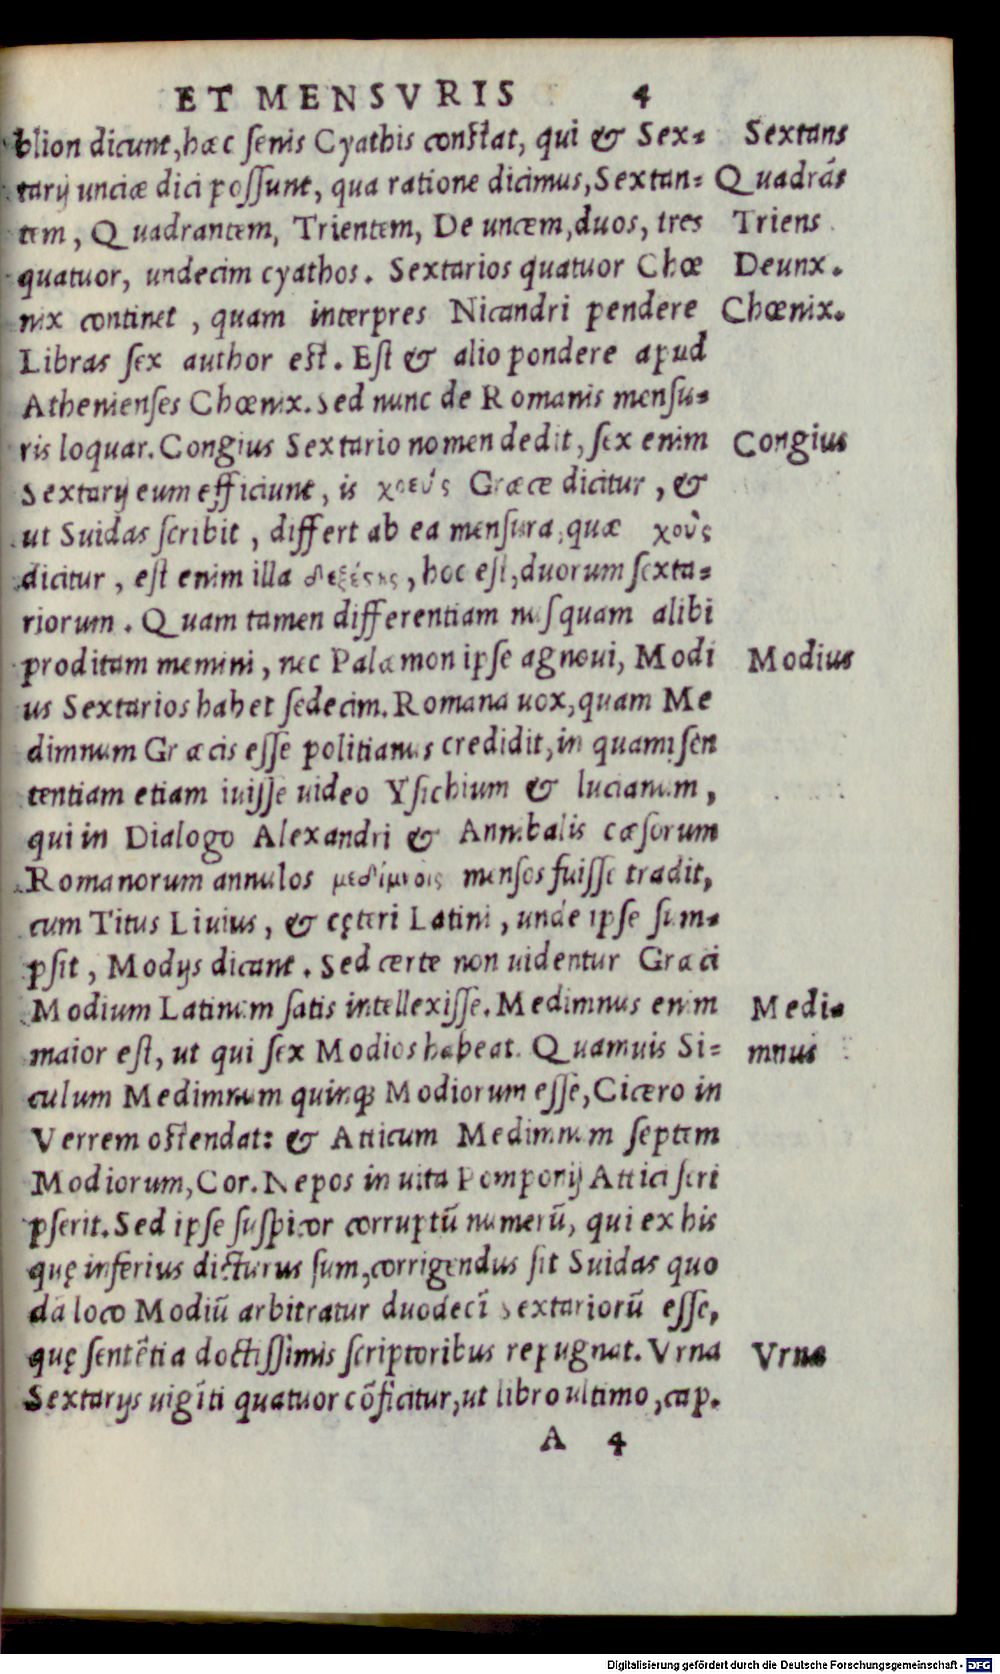 ET MENSVRIS 4
blion dicunt, hæc ſenis Cyathis conſtat, qui & Sex- Sextans
tarij unciæ dici poſſunt, qua ratione dicimus, Sextan- Quadrãs
tem, Quadrantem, Trientem, De uncem, duos, tres Triens
quatuor, undecim cyathos. Sextarios quatuor Chœ Deunx.
nix continet, quam interpres Nicandri pendere Chœnix.
Libras ſex author eſt. Eſt & alio pondere apud
Athenienſes Chœnix. Sed nunc de Romanis menſu-
ris loquar. Congius Sextario nomen dedit, ſex enim Congius
Sextarij eum efficiunt, is χοεύς Græce dicitur, &
ut Suidas ſcribit, differt ab ea menſura, quæ χοὺς
dicitur, eſt enim illa διξέστης, hoc eſt, duorum ſexta-
riorum. Quam tamen differentiam nuſquam alibi
proditam memini, nec Palæmon ipſe agnoui, Modi Modius
us Sextarios habet ſedecim. Romana uox, quam Me
dimnum Græcis eſſe politianus credidit, in quam ſen
tentiam etiam iuiſſe uideo Yſichium & lucianum,
qui in Dialogo Alexandri & Annibalis cæſorum
Romanorum annulos μεδίμνοις menſos fuiſſe tradit,
cum Titus Liuius, & cęteri Latini, unde ipſe ſum-
pſit, Modijs dicant. Sed certe non uidentur Græci
Modium Latinum ſatis intellexiſſe. Medimnus enim Medi-
maior eſt, ut qui ſex Modios habeat. Quamuis Si- mnus
culum Medimnum quinq; Modiorum eſſe, Cicero in
Verrem oſtendat: & Atticum Medimnum ſeptem
Modiorum, Cor. Nepos in uita Pomponij Attici ſcri
pſerit. Sed ipſe ſuſpicor corruptũ numerũ, qui ex his
quę inferius dicturus ſum, corrigendus ſit Suidas quo
dã loco Modiũ arbitratur duodecĩ Sextariorũ eſſe,
quę ſentẽtia doctiſſimis ſcriptoribus repugnat. Vrna Vrna
Sextarijs uigĩti quatuor cõficitur, ut libro ultimo, cap.
A 4
Digitalisierung gefördert durch die Deutsche Forschungsgemeinschaft - DFG